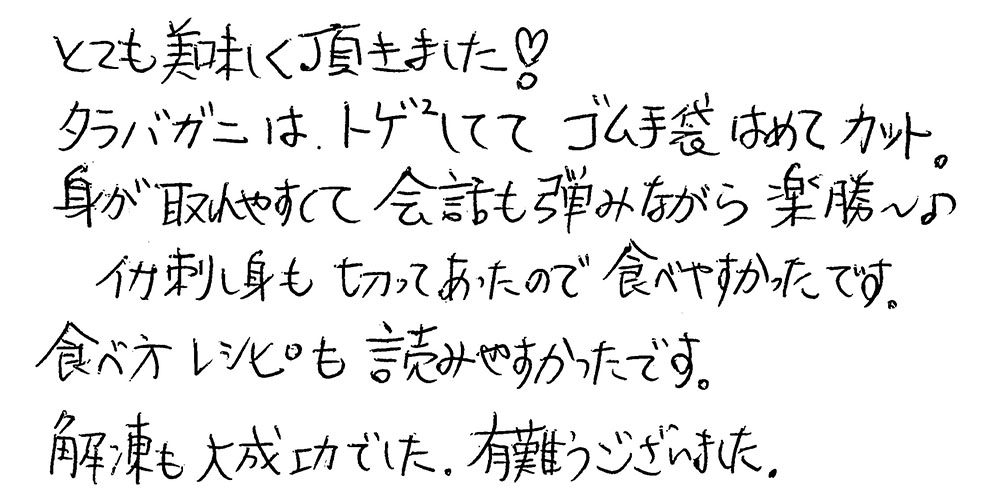 とても美味しく頂きました♡
タラバガニは、トゲ²してて ゴム手袋はめてカット。
身が取れやすくて 会話も弾みながら 楽勝～♪
イカ刺し身も 切ってあったので 食べやすかったです。
食べ方レシピも 読みやすかったです。
解凍も大成功でした。有難うございました。